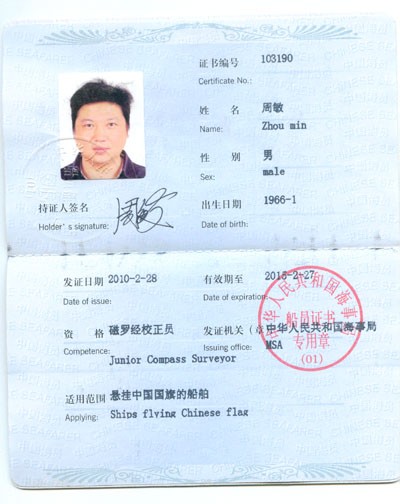 证书编号 103190
Certificate No.:
姓 名 周敏
Name: Zhou min
性 别 男
Sex: male
持证人签名 周敏
出生日期 1966-1
Holder's signature:
Date of birth:
发证日期 2010-2-28 有效期至 2015-2-27
Date of issue: Date of expiration:
资 格 磁罗经校正员 发证机关(章 中华人民共和国海事局
Competence: Junior Compass Surveyor Issuing office: MSA
适用范围 悬挂中国国旗的船舶
Applying: Ships flying Chinese flag
中华人民共和国海事局
船员证书
专用章
(01)